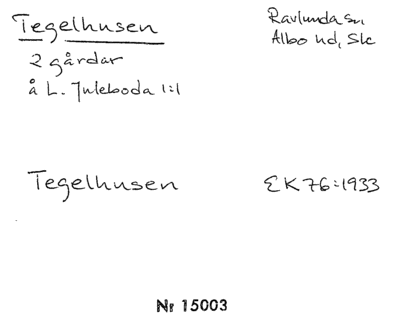 Tegelhusen
Ravlunda sn
Albo hd, Skå
2 gårdar
å L. Juleboda 1:1
Tegelhusen
EK 76:1933
Nr 15003